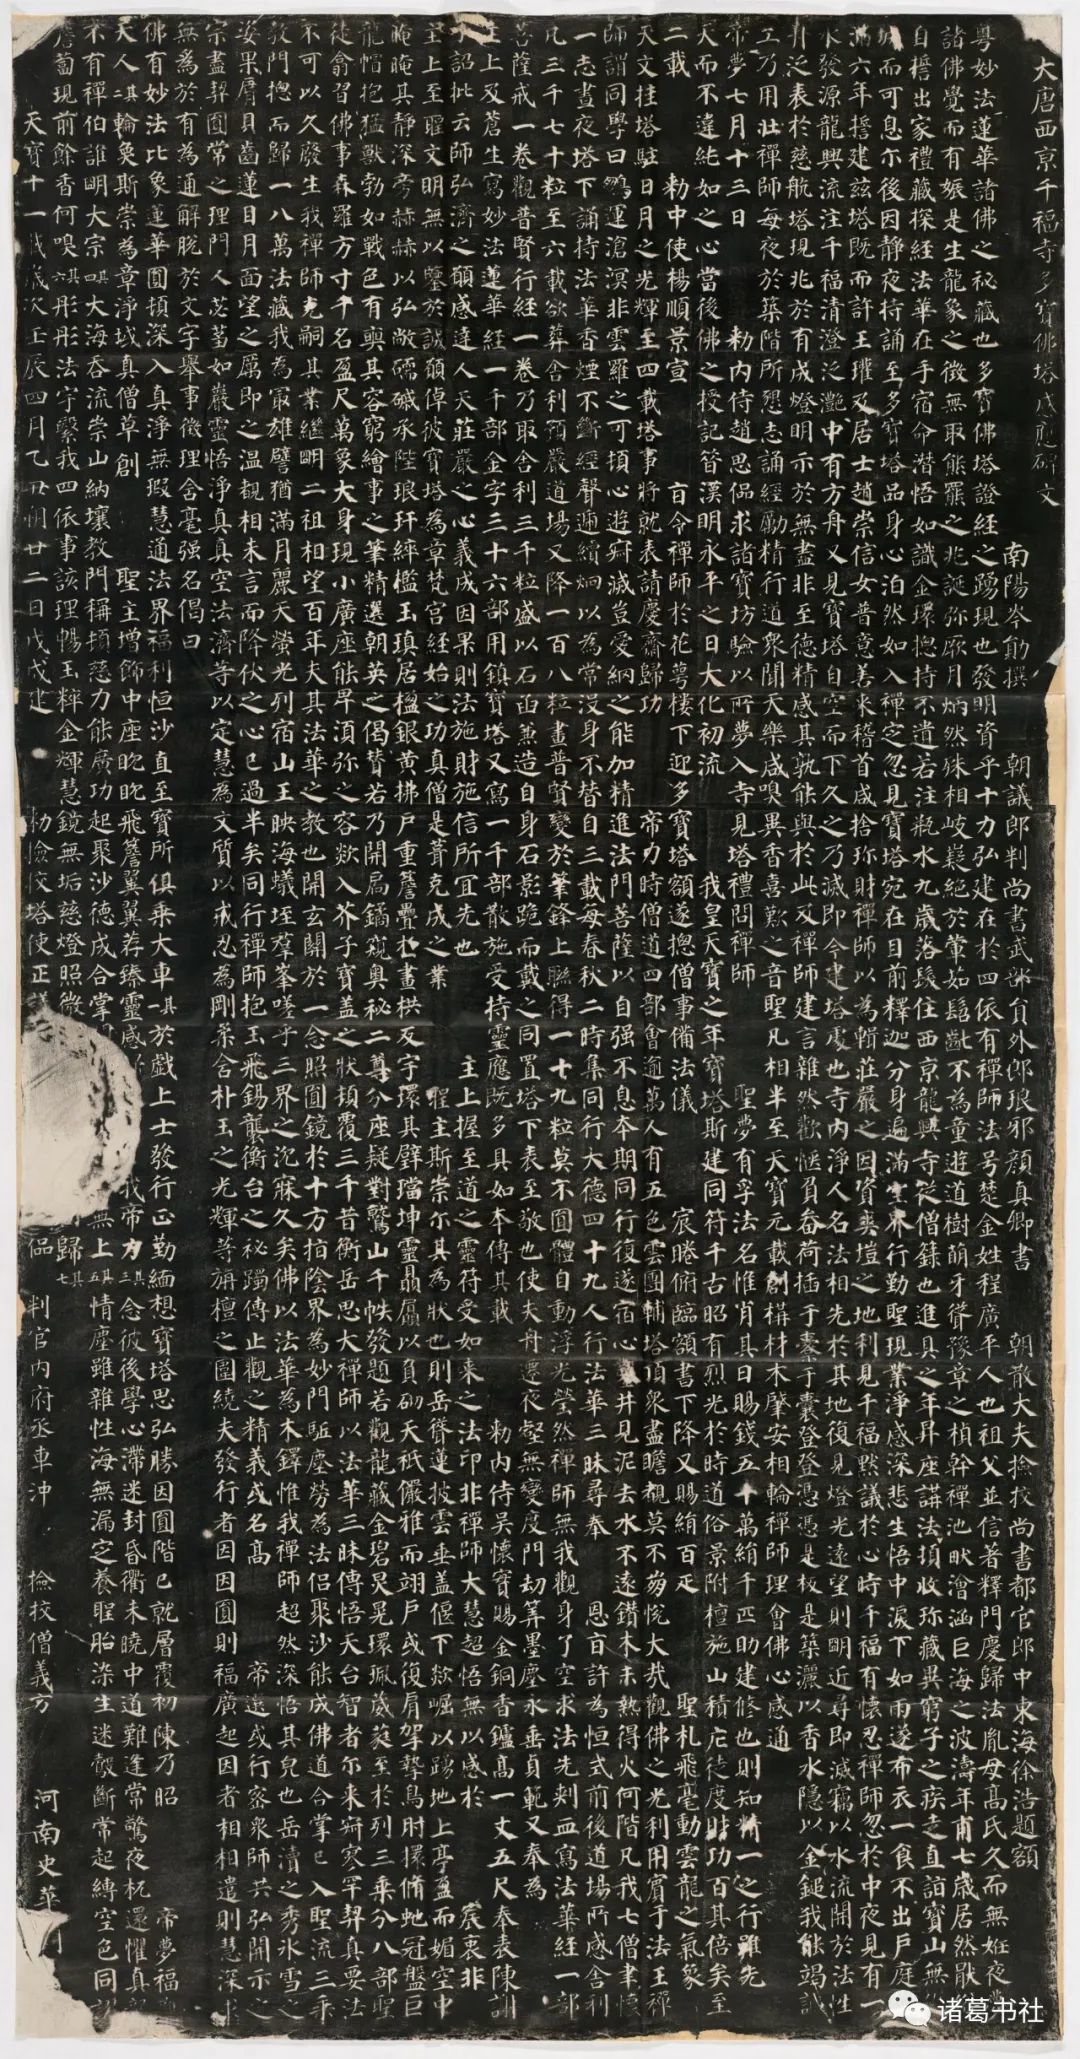 大唐西京千福寺多寶佛塔感應碑文
南陽岑勛撰 朝議郎判尚書武部員外郎琅邪顏真卿書 朝散大夫撿挍尚書都官郎中東海徐浩題額
粵妙法蓮華諸佛之秘藏也多寶佛塔證經之踴現也發明資乎十力弘建在於四依有禪師法号楚金姓程廣平人也祖父並信著釋門慶歸法胤母高氏久而無妊夜夢
諸佛覺而有娠是生龍象之徵無取熊羆之兆誕弥厥月炳然殊相岐嶷絕於葷茹髫齔不為童遊道樹萌牙聳豫章之楨幹禪池畎澮涵巨海之波濤年甫七歲居然猒俗
自誓出家禮藏探經法華在手宿命潛悟如識金環總持不遺若注瓶水九歲落髮住西京龍興寺從僧籙也進具之年昇座講法頓收珍藏異窮子之疾走直詣寶山無化
城而可息尒後因靜夜持誦至多寶塔品身心泊然如入禪定忽見寶塔宛在目前釋迦分身遍滿空界行勤聖現業淨感深悲生悟中淚下如雨遂布衣一食不出戶庭期
滿六年誓建茲塔既而許王瓘及居士趙崇信女普意善來稽首咸捨珍財禪師以為輯莊嚴之因資爽塏之地利見千福默議於心時千福有懷忍禪師忽於中夜見有一
水發源龍興流注千福清澄泛灩中有方舟又見寶塔自空而下久之乃滅即今建塔處也寺內淨人名法相先於其地復見燈光遠望則明近尋即滅竊以水流開於法性
舟泛表於慈航塔現兆於有成燈明示於無盡非至德精感其孰能與於此及禪師建言雜然歡愜負畚荷插于橐于囊登登憑憑是板是築灑以香水隱以金鎚我能竭誠
工乃用壯禪師每夜於築階所懇志誦經勵精行道眾聞天樂咸嗅異香喜歎之音聖凡相半至天寶元載創構材木肇安相輪禪師理會佛心感通
帝夢七月十三日 勑內侍趙思偘求諸寶坊驗以所夢入寺見塔禮問禪師 聖夢有孚法名惟肖其日賜錢五十萬絹千匹助建修也則知精一之行雖先
天而不違純如之心當後佛之授記昔漢明永平之日大化初流 我皇天寶之年寶塔斯建同符千古昭有烈光於時道俗景附檀施山積庀徒度財功百其倍矣至
二載 勑中使楊順景宣 旨令禪師於花萼樓下迎多寶塔額遂總僧事備法儀 宸睠俯臨額書下降又賜絹百疋 聖札飛毫動雲龍之氣象
天文挂塔駐日月之光輝至四載塔事將就表請慶齋歸功 帝力時僧道四部會逾萬人有五色雲團輔塔頂眾盡瞻覩莫不崩悅大哉觀佛之光利用賓于法王禪
師謂同學曰鵬運滄溟非雲羅之可頓心遊寂滅豈愛網之能加精進法門菩薩以自強不息本期同行復遂宿心鑿井見泥去水不遠鑽木未熱得火何階凡我七僧聿懷
一志晝夜塔下誦持法華香煙不斷經聲遞續炯以為常沒身不替自三載每春秋二時集同行大德四十九人行法華三昧尋奉 恩旨許為恒式前後道場所感舍利
凡三千七十粒至六載欲葬舍利預嚴道場又降一百八粒畫普賢變於筆鋒上聯得一十九粒莫不圓體自動浮光瑩然禪師無我觀身了空求法先刺血寫法華經一部
菩薩戒一卷觀普賢行經一卷乃取舍利三千粒盛以石函兼造自身石影跪而戴之同置塔下表至敬也使夫舟遷夜壑無變度門劫筭墨塵永垂貞範又奉為
主上及蒼生寫妙法蓮華經一千部金字三十六部用鎮寶塔又寫一千部散施受持靈應既多具如本傳其載 勑內侍吳懷實賜金銅香鑪高一丈五尺奉表陳謝
手詔批云師弘濟之願感達人天莊嚴之心義成因果則法施財施信所宜先也 主上握至道之靈符受如來之法印非禪師大慧超悟無以感於 宸衷非
主上至聖文明無以鑒於誠願倬彼寶塔為章梵宮經始之功真僧是葺克成之業 聖主斯崇尒其為狀也則岳聳蓮披雲垂蓋偃下欻崛以踊地上亭盈而媚空中
晻晻其靜深旁赫赫以弘敞礝碱承陛琅玕綷檻玉瑱居楹銀黃拂戶重簷疊於畫栱反宇環其壁璫坤靈贔屭以負砌天祇儼雅而翊戶或復肩挐摯鳥肘擐脩虵冠盤巨
龍帽抱猛獸勃如戰色有奭其容窮繪事之筆精選朝英之偈贊若乃開扃鐍窺奧秘二尊分座疑對鷲山千帙發題若觀龍藏金碧炅晃環珮葳蕤至於列三乘分八部聖
徒翕習佛事森羅方寸千名盈尺萬象大身現小廣座能卑須弥之容欻入芥子寶蓋之狀頓覆三千昔衡岳思大禪師以法華三昧傳悟天台智者尒來寂寥罕契真要法
不可以久廢生我禪師克嗣其業繼明二祖相望百年夫其法華之教也開玄關於一念照圓鏡於十方指陰界為妙門駈塵勞為法侶聚沙能成佛道合掌已入聖流三乘
教門總而歸一八萬法藏我為最雄譬猶滿月麗天螢光列宿山王映海蟻垤群峯嗟乎三界之沉寐久矣佛以法華為木鐸惟我禪師超然深悟其皃也岳瀆之秀冰雪之
姿果脣貝齒蓮目月面望之厲即之溫覩相未言而降伏之心已過半矣同行禪師抱玉飛錫襲衡台之秘躅傳止觀之精義或名高 帝選或行密眾師共弘開示之
宗盡契圓常之理門人苾蒭如巖靈悟淨真真空法濟等以定慧為文質以戒忍為剛柔含朴玉之光輝等旃檀之圍繞夫發行者因因圓則福廣起因者相相遣則慧深求
無為於有為通解脫於文字舉事徵理含毫強名偈曰
佛有妙法比象蓮華圓頓深入真淨無瑕慧通法界福利恒沙直至寶所俱乘大車其一 於戲上士發行正勤緬想寶塔思弘勝因圓階已就層覆初陳乃昭 帝夢福
天人其二 輪奐斯崇為章淨域真僧草創 聖主增飾中座眈眈飛簷翼翼荐臻靈感 我帝力其三 念彼後學心滯迷封昏衢未曉中道難逢常驚夜杌還懼真
不有禪伯誰明大宗其四 大海吞流崇山納壤教門稱頓慈力能廣功起聚沙德成合掌 無上其五 情塵雖雜性海無漏定養聖胎染生迷鷇斷常起縛空色同
薝蔔現前餘香何嗅其六 彤彤法宇繫我四依事該理暢玉粹金輝慧鏡無垢慈燈照微 歸其七
天寶十一載歲次壬辰四月乙丑朔廿二日戊戌建 勑撿挍塔使正 偘 判官內府丞車沖 撿挍僧義方 河南史華
諸葛书社